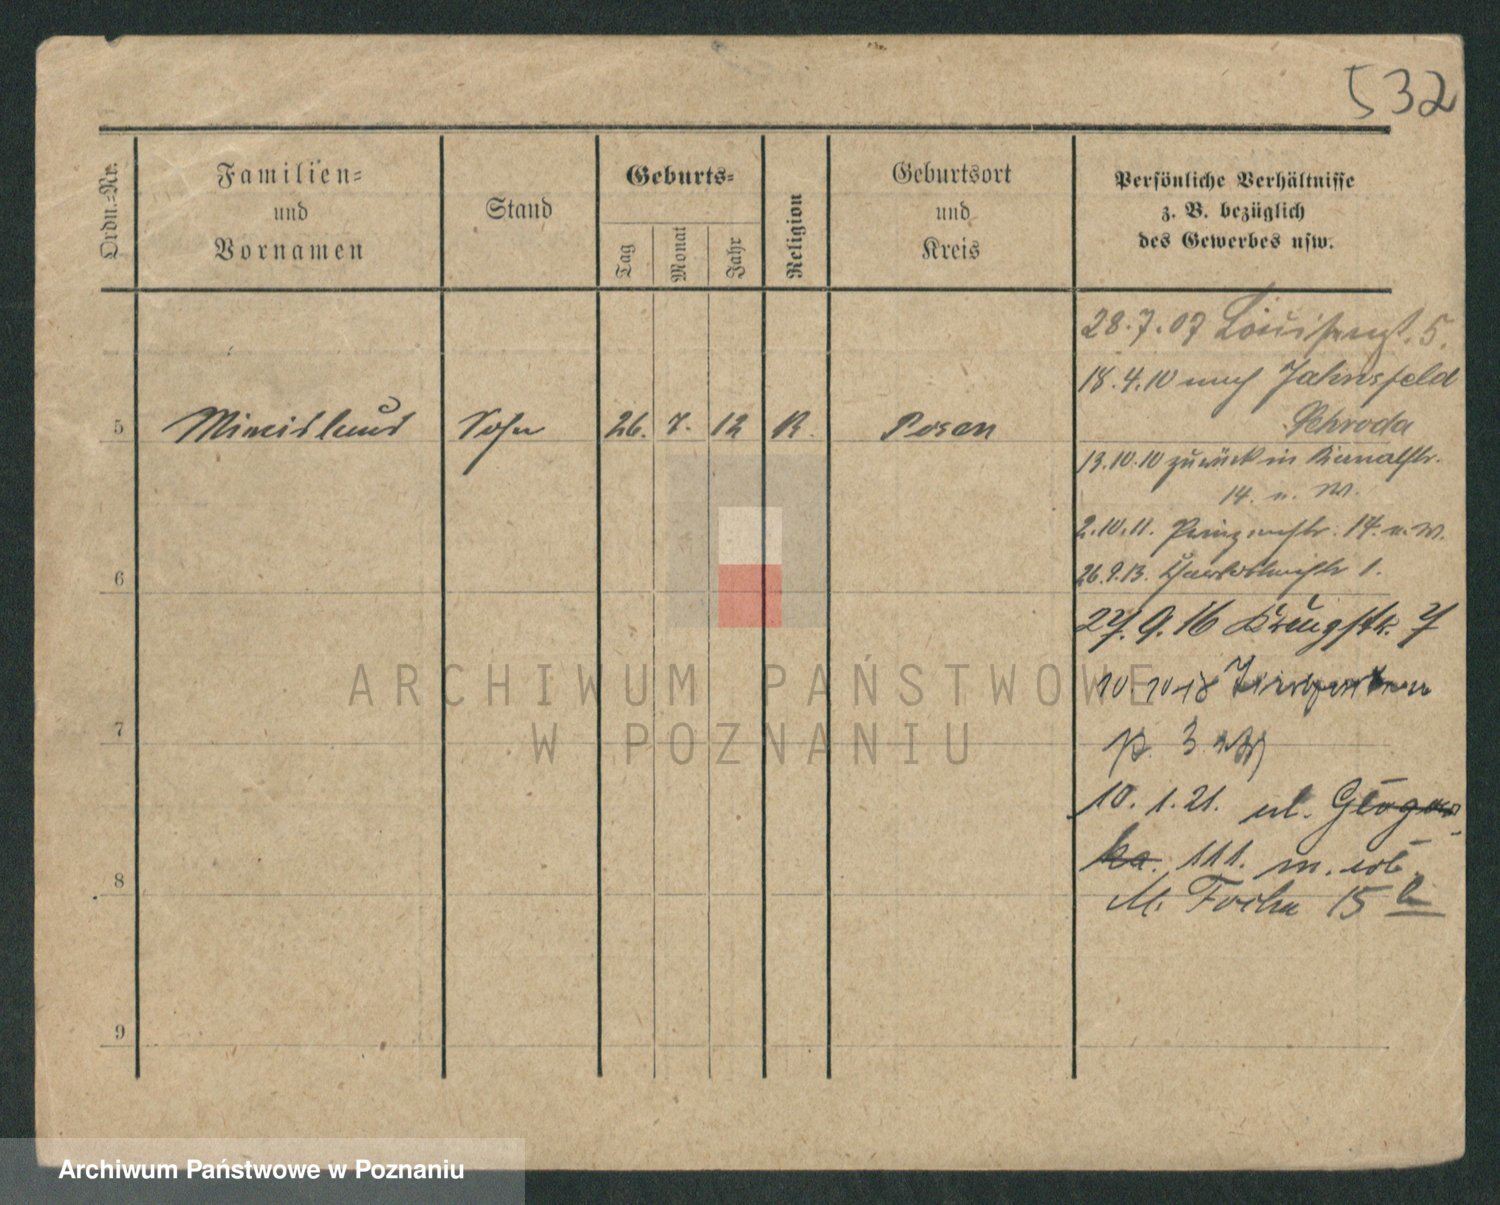 532
Ordn.-Nr.
Familien-
und
Vornamen
Stand
Geburts-
Tag
Monat
Jahr
Religion
Geburtsort
und
Kreis
Persönliche Verhältnisse
z. B. bezüglich
des Gewerbes usw.
28.7.07 Louisenst. 5.
18.4.10 nach Jahnsfeld
Schroda
5 Sohn 26. 7. 12 K. Posen
13.10.10 zurück in Kanalstr.
14. u. W.
2.10.11. Prinzenstr. 14. u. W.
6
26.9.13. 1.
27. 9. 16 Krugstr. 7
10.10.18
7
p. 3
10. 1. 21. ul. Głogow-
ska. 111. m. wł.
8
M. Focha 15
9
ARCHIWUM PAŃSTWOWE
W POZNANIU
Archiwum Państwowe w Poznaniu